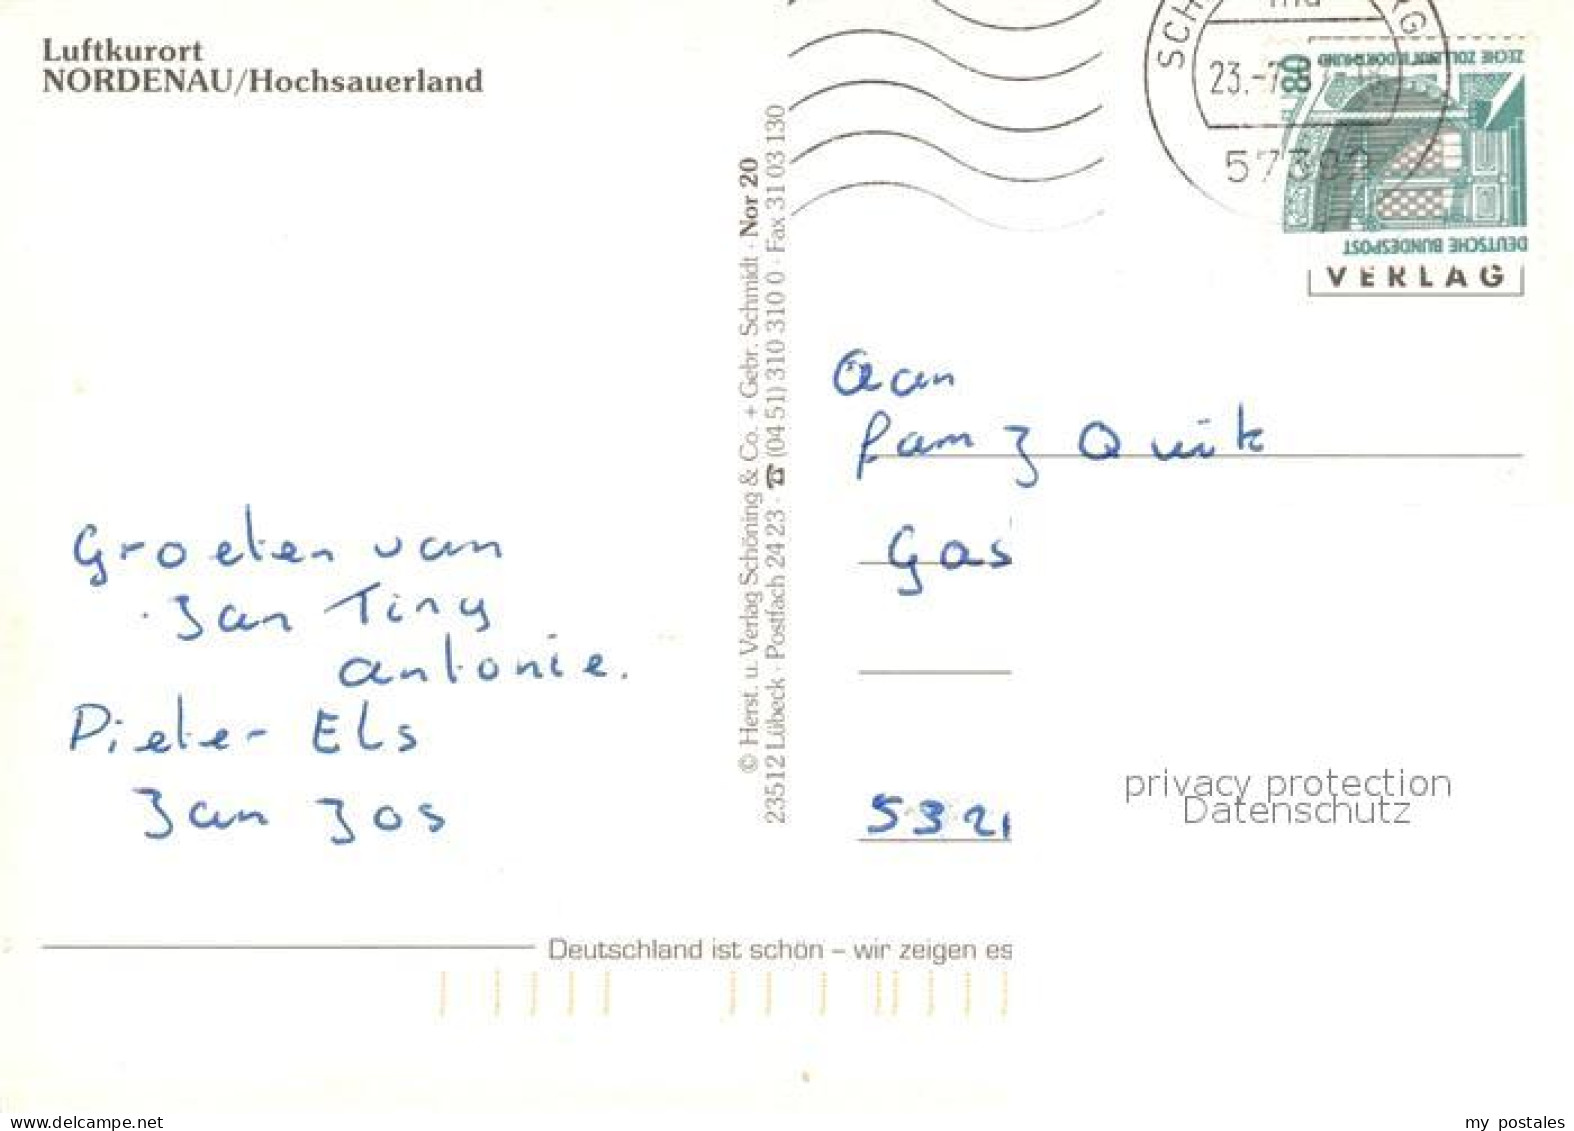 Luftkurort
NORDENAU/Hochsauerland
Groeten van
Jan Tiny
antonie.
Pieter Els
Jan Jos
© Herst. u. Verlag Schöning & Co. + Gebr. Schmidt · Nor 20
23512 Lübeck · Postfach 24 23 · ☎ (04 51) 310 310 0 · Fax 31 03 130
23.-7.
57392
80
DEUTSCHE BUNDESPOST
VERLAG
aan
fam J Quik
Gas
5321
privacy protection
Datenschutz
Deutschland ist schön – wir zeigen es
www.delcampe.net
my postales